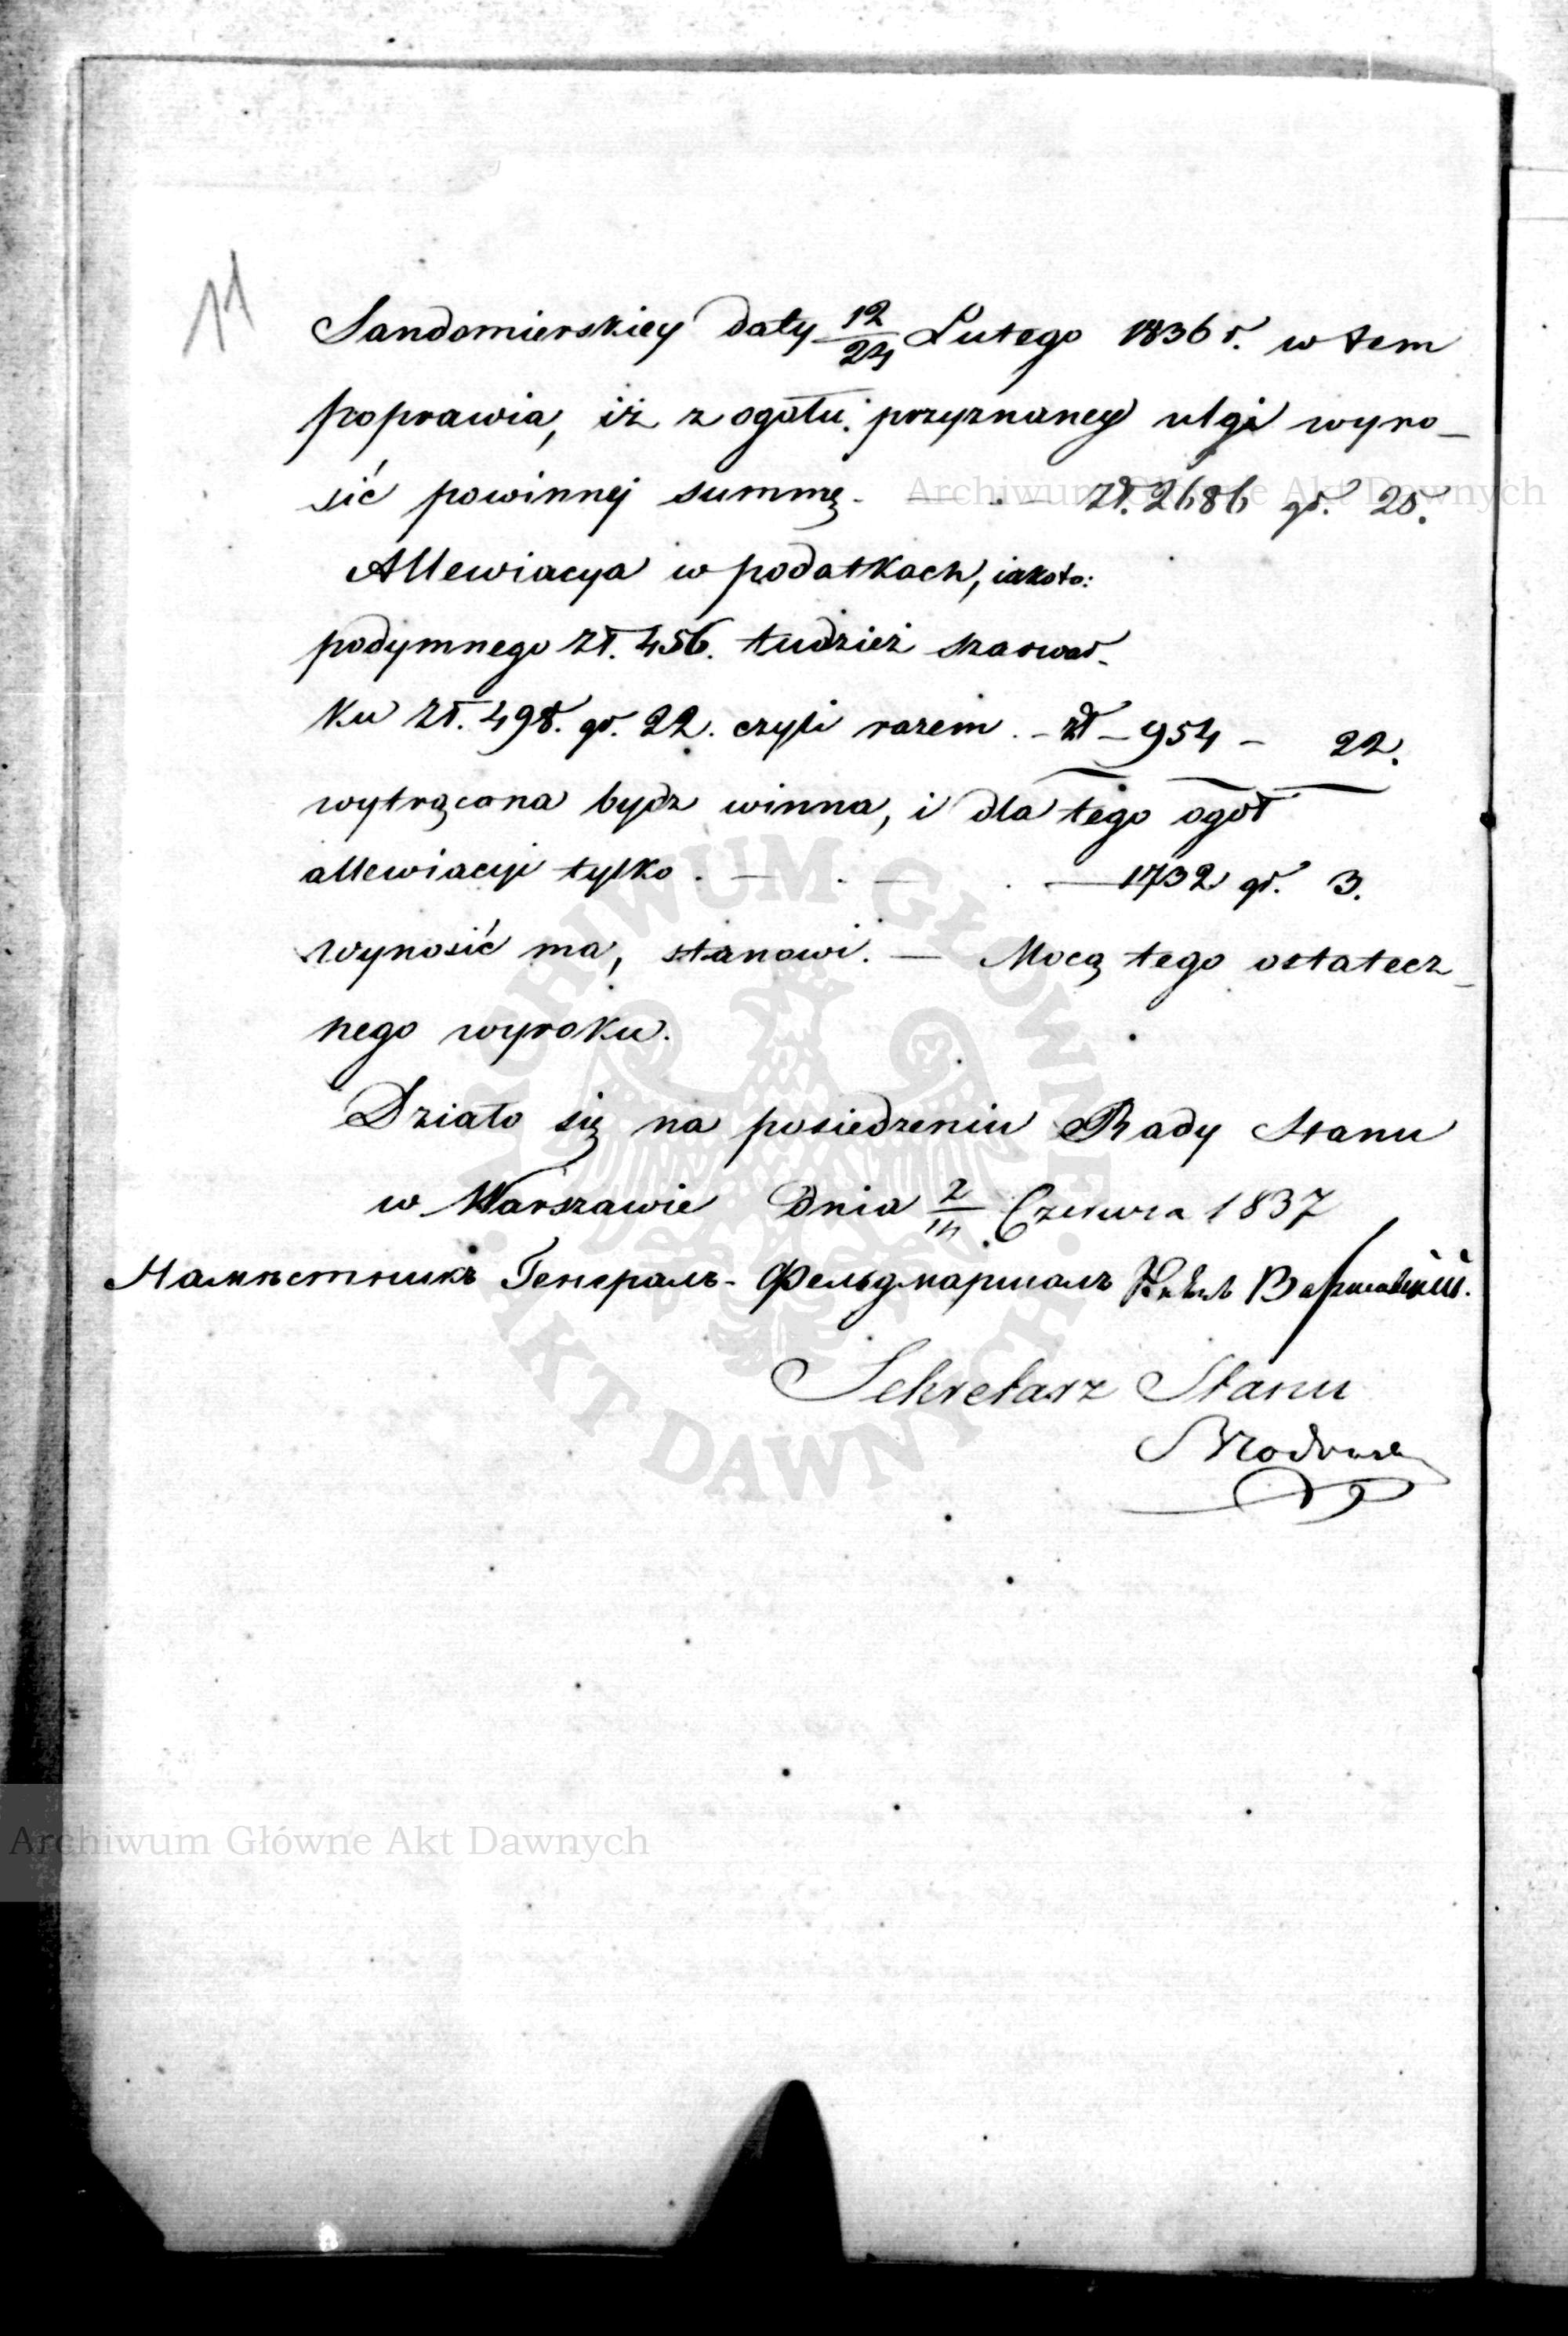 11
Sandomierskiey daty 12/24 Lutego 1836 r. w tem
poprawia, iż z ogołu przyznaney ulgi wyno-
sić powinnej summę. — . — zł. 2686 gr. 25.
Allewiacya w podatkach, iakoto:
podymnego zł. 456. tudzież szarwar-
ku zł. 498. gr. 22. czyli razem. - zł - 954 - 22.
wytrącona bydz winna, i dla tego ogół
allewiacyi tylko . — . — . — 1732 gr. 3.
wynosić ma, stanowi. — Mocą tego ostatecz-
nego wyroku.
Działo się na posiedzeniu Rady Stanu
w Warszawie Dnia 2/14 Czerwca 1837
Намѣстникъ Генералъ-Фельдмаршалъ Князь Варшавскій.
Sekretarz Stanu
Archiwum Główne Akt Dawnych
Archiwum Główne Akt Dawnych
ARCHIWUM GŁÓWNE AKT DAWNYCH